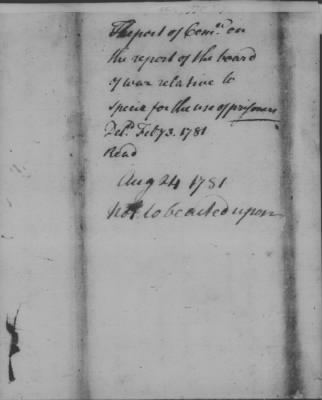 Report of Com.ee on
the report of the board
of war relative to
specie for the use of prisoners
Del.d Feb.y 3. 1781
Read
Aug 24 1781
Not to be acted upon